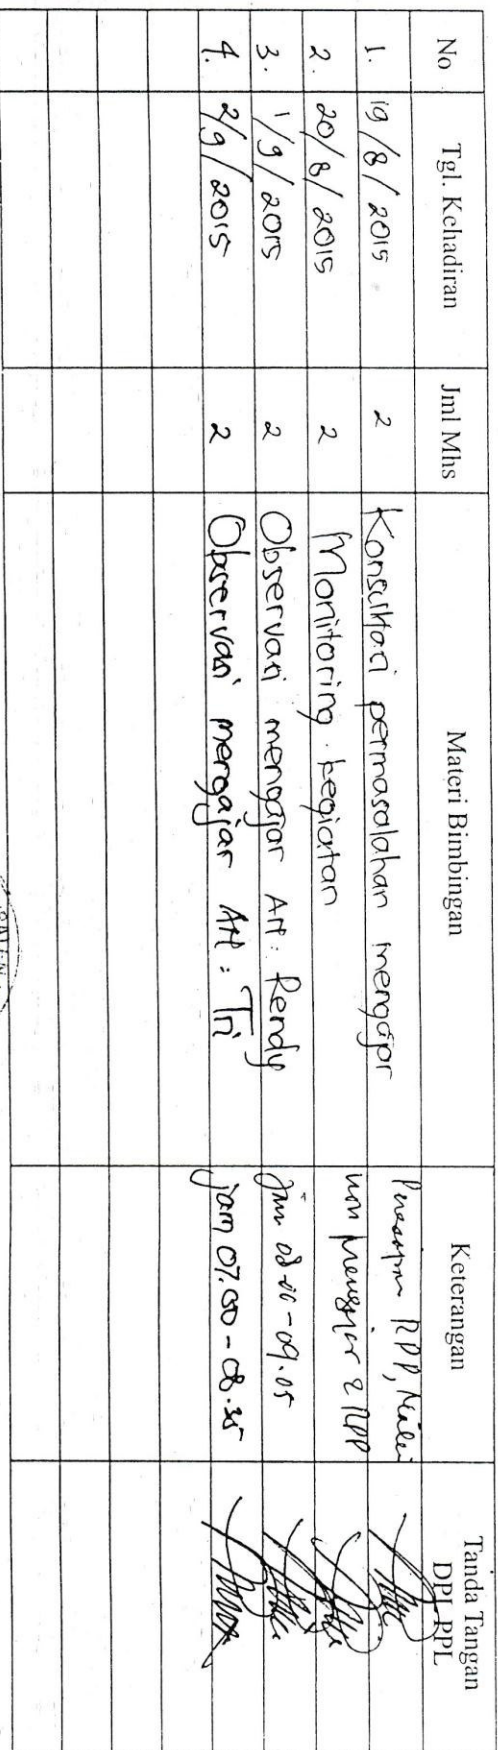 No Tgl. Kehadiran Jml Mhs Materi Bimbingan Keterangan Tanda Tangan
DPL PPL
1. 19/8/2015 2 Konsultasi permasalahan mengajar RPP,
2. 20/8/2015 2 Monitoring kegiatan non mengajar & RPP
3. 1/9/2015 2 Observasi mengajar An: Rendy jam 08.00-09.05
4. 2/9/2015 2 Observasi mengajar An: Tri jam 07.00-08.35